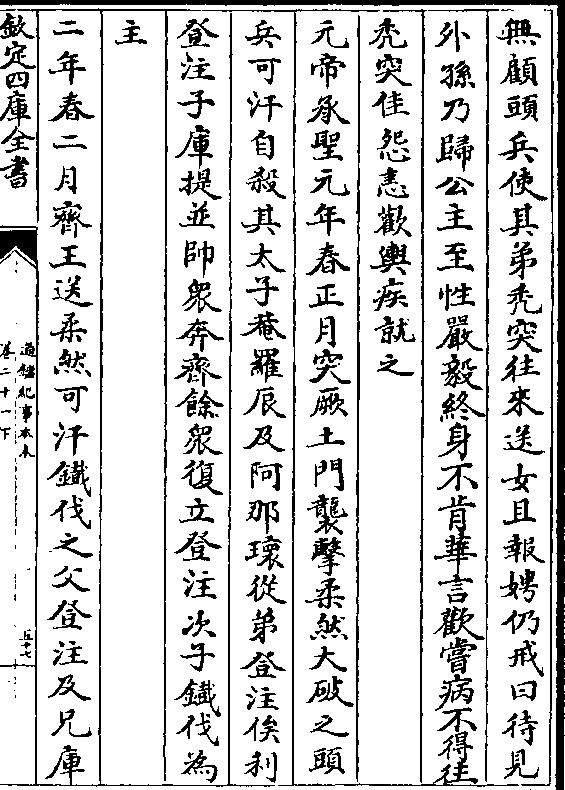 無顧頭兵使其弟秃突往來送女且報娉仍戒曰待見
外孫乃歸公主至性嚴毅終身不肯華言歡嘗病不得往
秃突佳怨恚歡輿疾就之
元帝承聖元年春正月突厥土門襲擊柔然大破之頭
兵可汗自殺其太子菴羅辰及阿那瓌從弟登注俟利
登注子庫提並帥衆奔齊餘衆復立登注次子鐵伐為
主
二年春二月齊王送柔然可汗鐵伐之父登注及兄庫
欽定四庫全書
通鑑紀事本末
卷二十一下
五十七